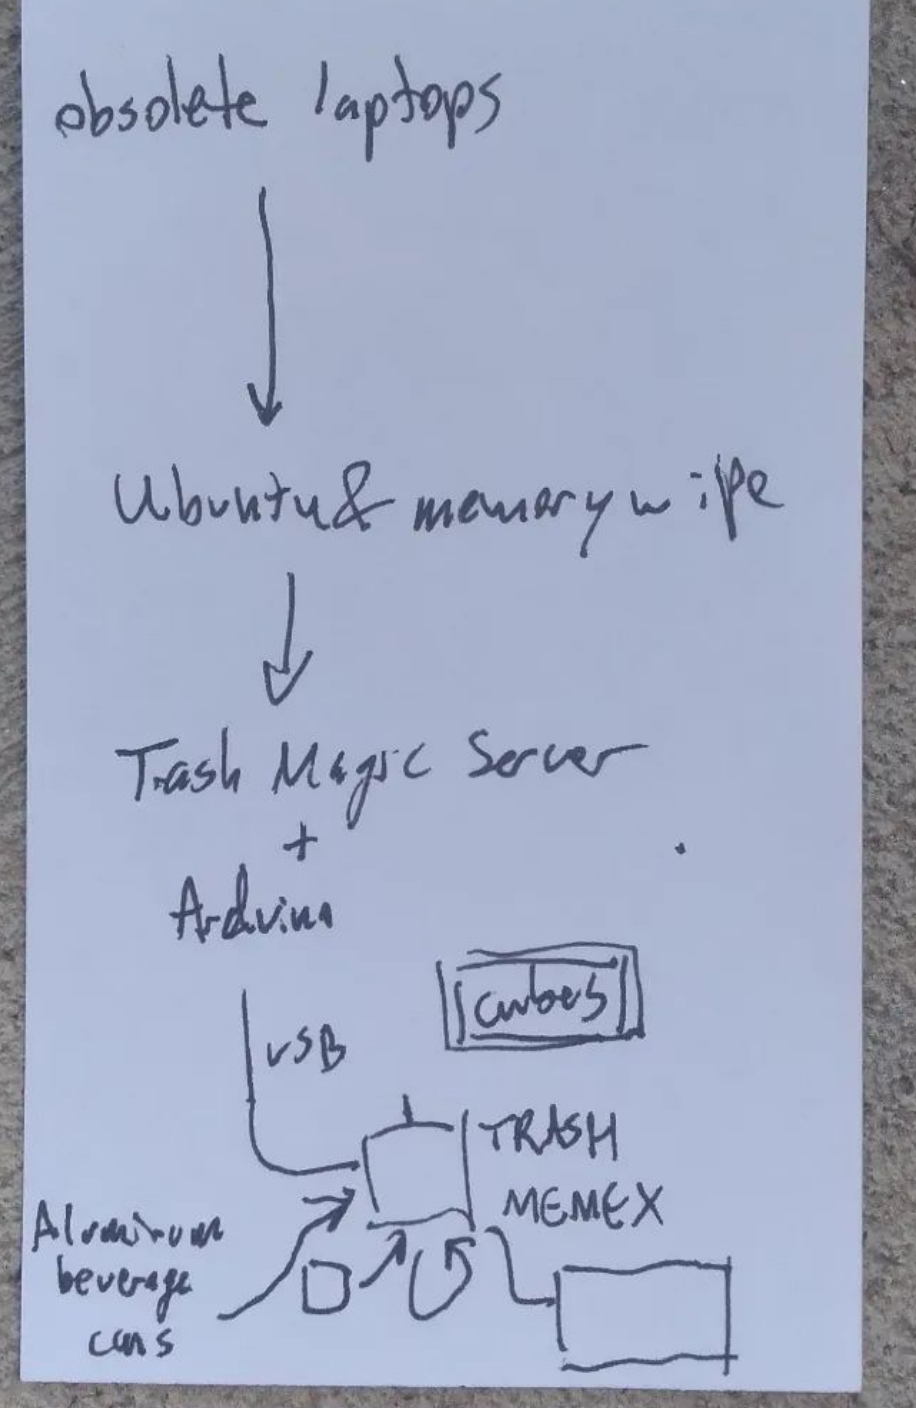 obsolete laptops
Ubuntu & memory wipe
Trash Magic Server
+
Arduino
cubes
USB
TRASH
MEMEX
Aluminum
beverage
cans